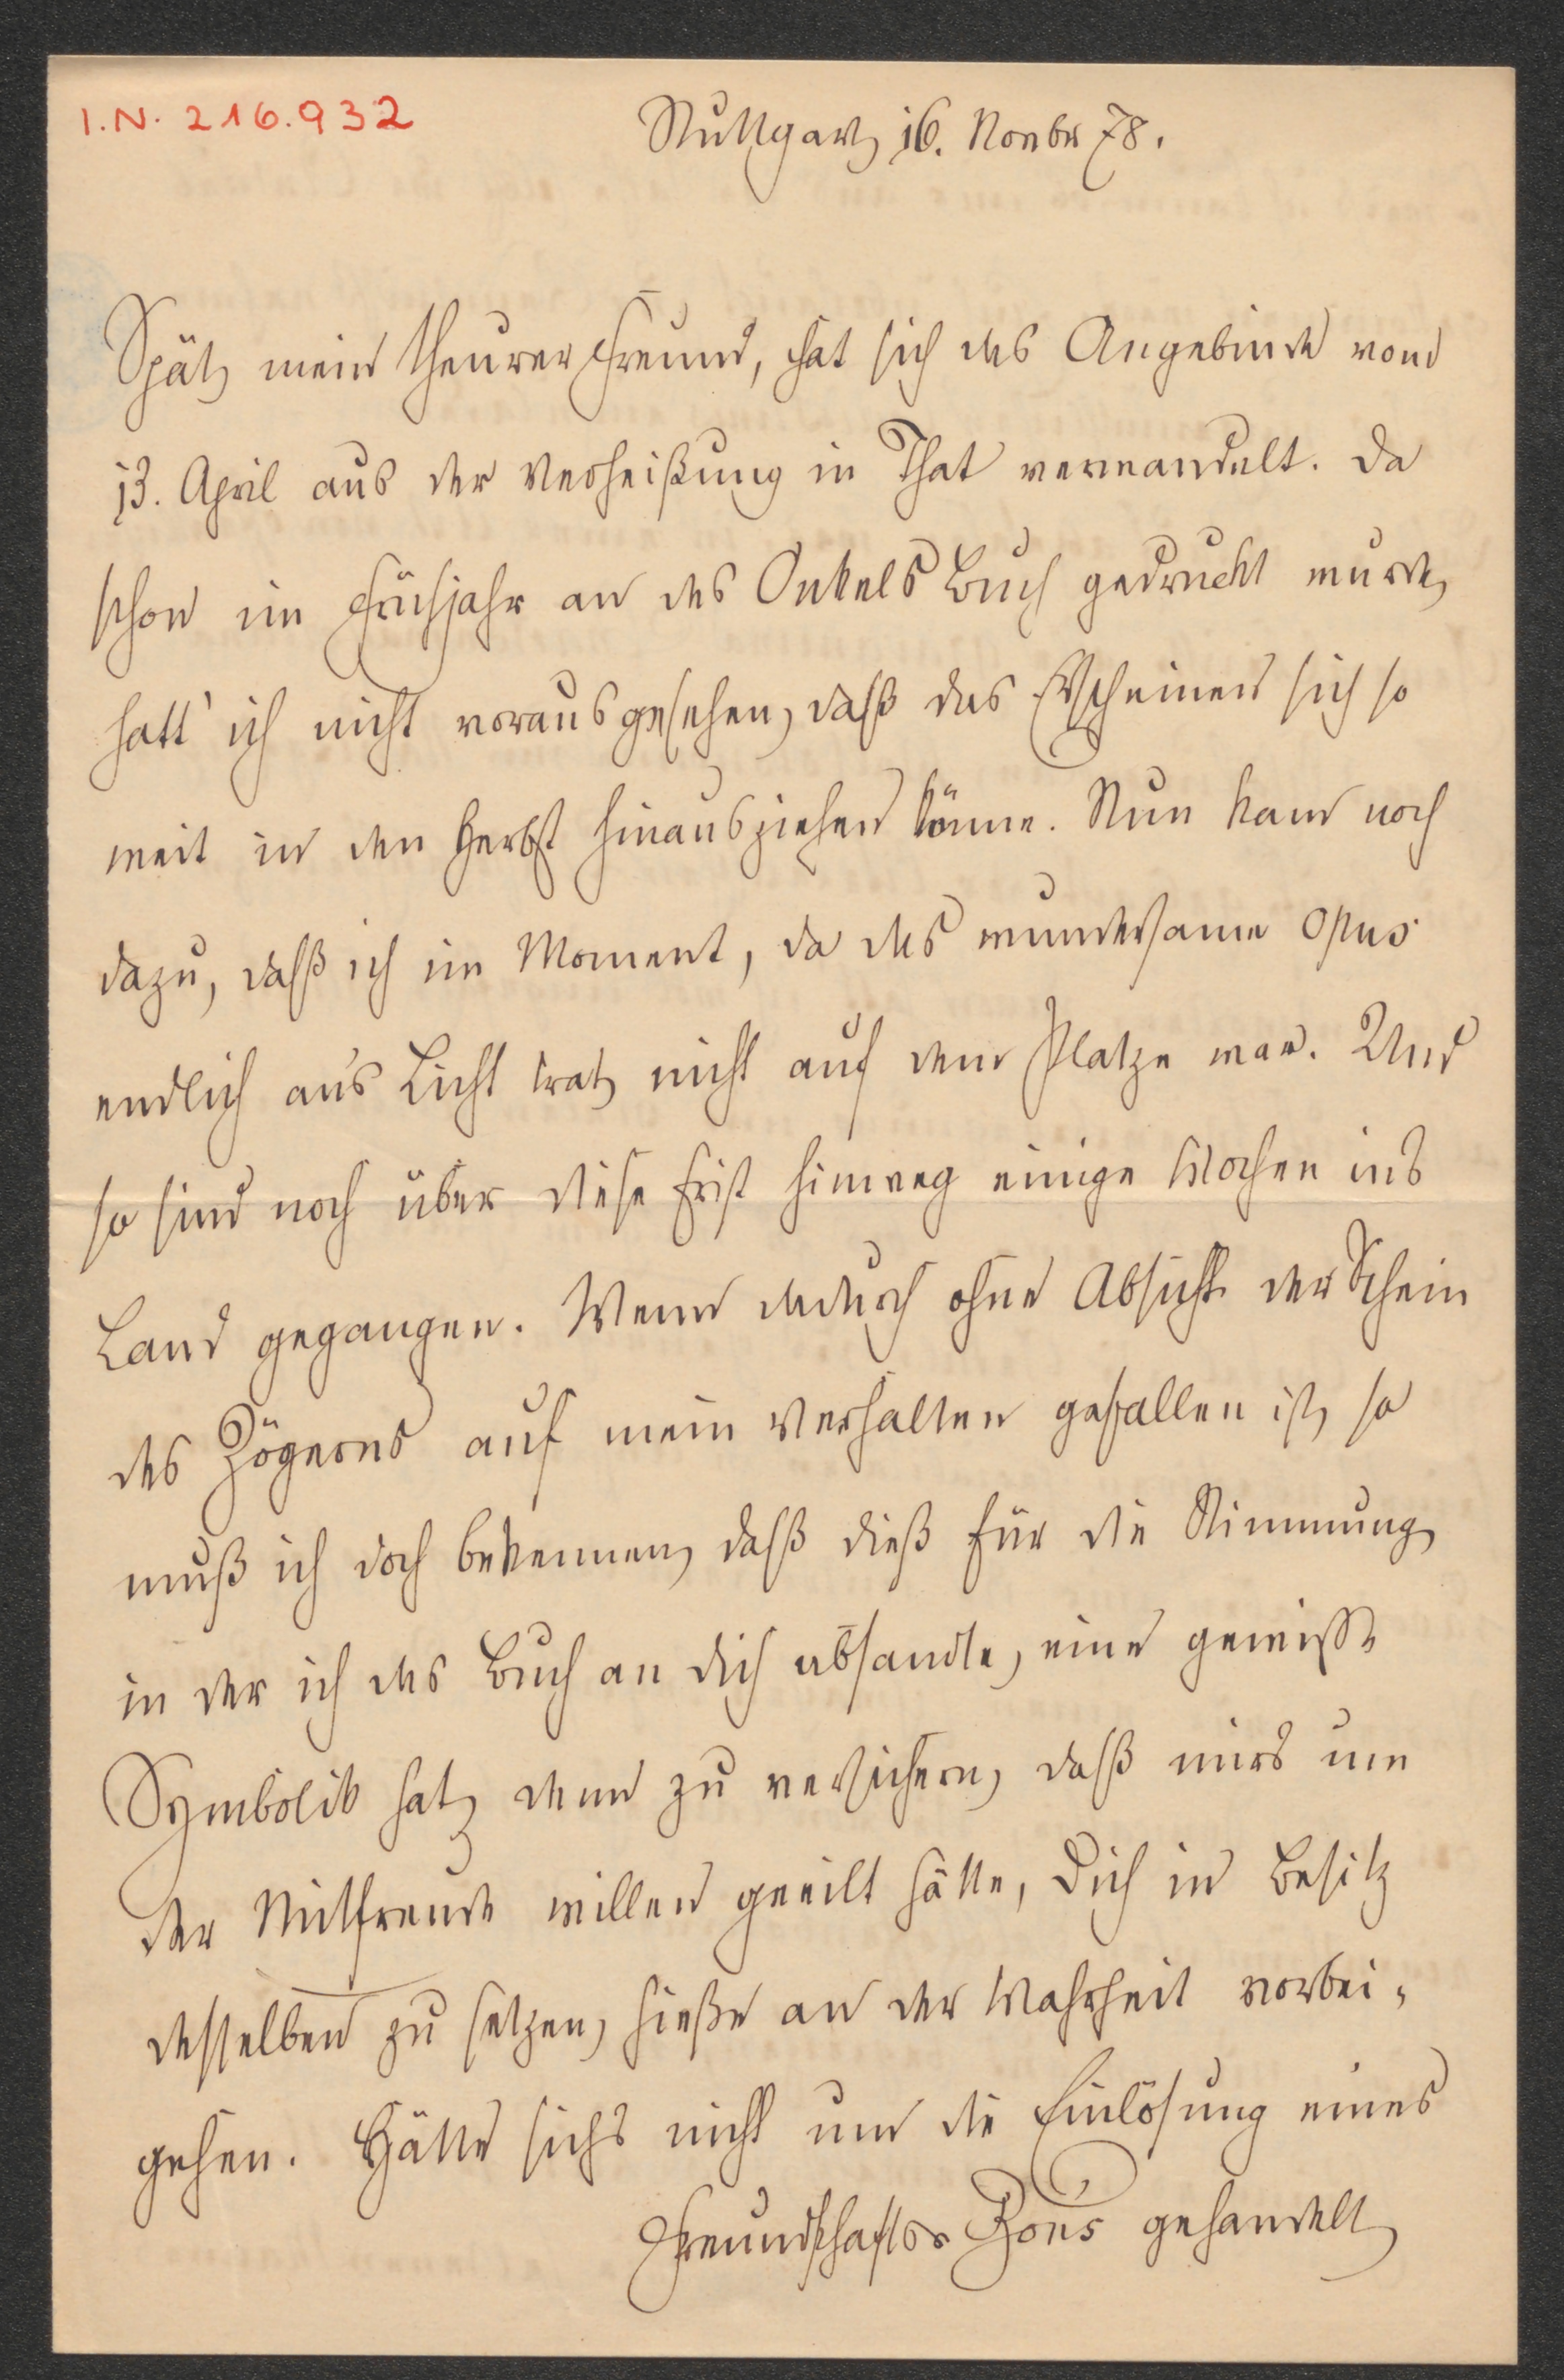 I.N. 216.932
Stuttgart, 16. Novbr 78.
Spät, mein theurer Freund, hat sich das Angebinde vom
13. April aus der Verheißung in That verwandelt. Da
schon im Frühjahr an des Onkels Buch gedruckt wurde,
hatt' ich nicht vorausgesehen, daß das Erscheinen sich so
weit in den Herbst hinausziehen könne. Nun kam noch
dazu, daß ich im Moment, da das wundersame Opus
endlich ans Licht trat, nicht auf dem Platze war. Und
so sind noch über diese Frist hinweg einige Wochen ins
Land gegangen. Wenn dadurch ohne Absicht der Schein
des Zögerns auf mein Verhalten gefallen ist, so
muß ich doch bekennen, daß dieß für die Stimmung,
in der ich das Buch an dich absandte, eine gewisse
Symbolik hat, denn zu versichern, daß mirs um
der Mitfreude willen geeilt hätte, Dich in Besitz
desselben zu setzen, hieße an der Wahrheit vorbei-
gehen. Hätte sichs nicht um die Einlösung eines
Freundschafts-Bons gehandelt,